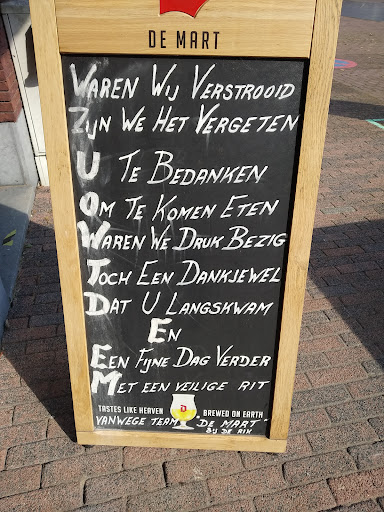 DE MART
WAREN WIJ VERSTROOID
ZIJN WE HET VERGETEN
U TE BEDANKEN
OM TE KOMEN ETEN
WAREN WE DRUK BEZIG
TOCH EEN DANKJEWEL
DAT U LANGSKWAM
EN
EEN FIJNE DAG VERDER
MET EEN VEILIGE RIT
TASTES LIKE HEAVEN BREWED ON EARTH
VANWEGE TEAM "DE MART"
BIJ DE RIK